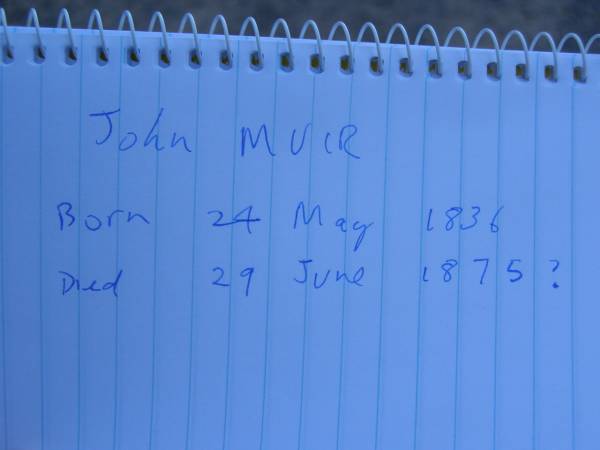 John MUIR
Born 24 May 1836
Died 29 June 1875 ?